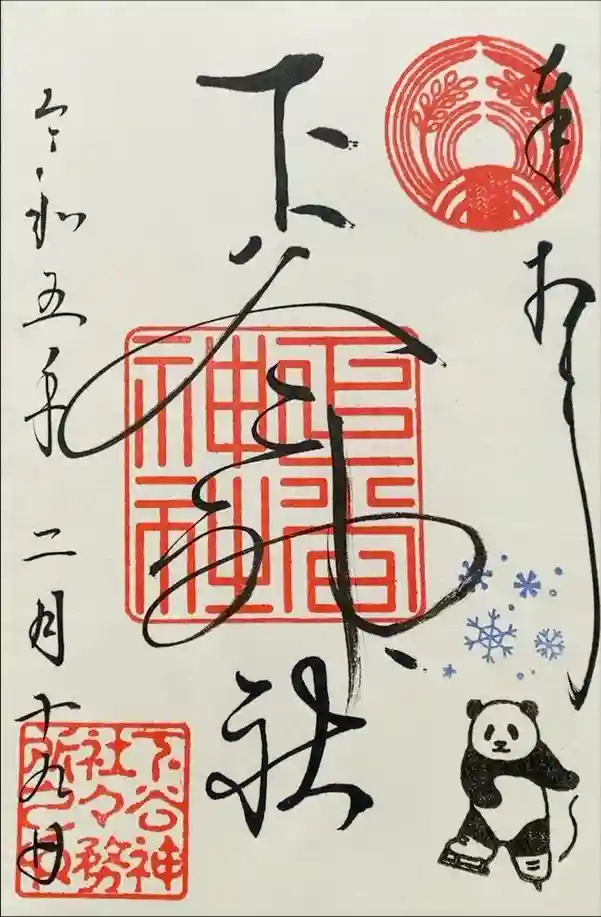 奉拝
下谷神社
下谷
神社
令和五年二月十九日
下谷神
社々務
所之印